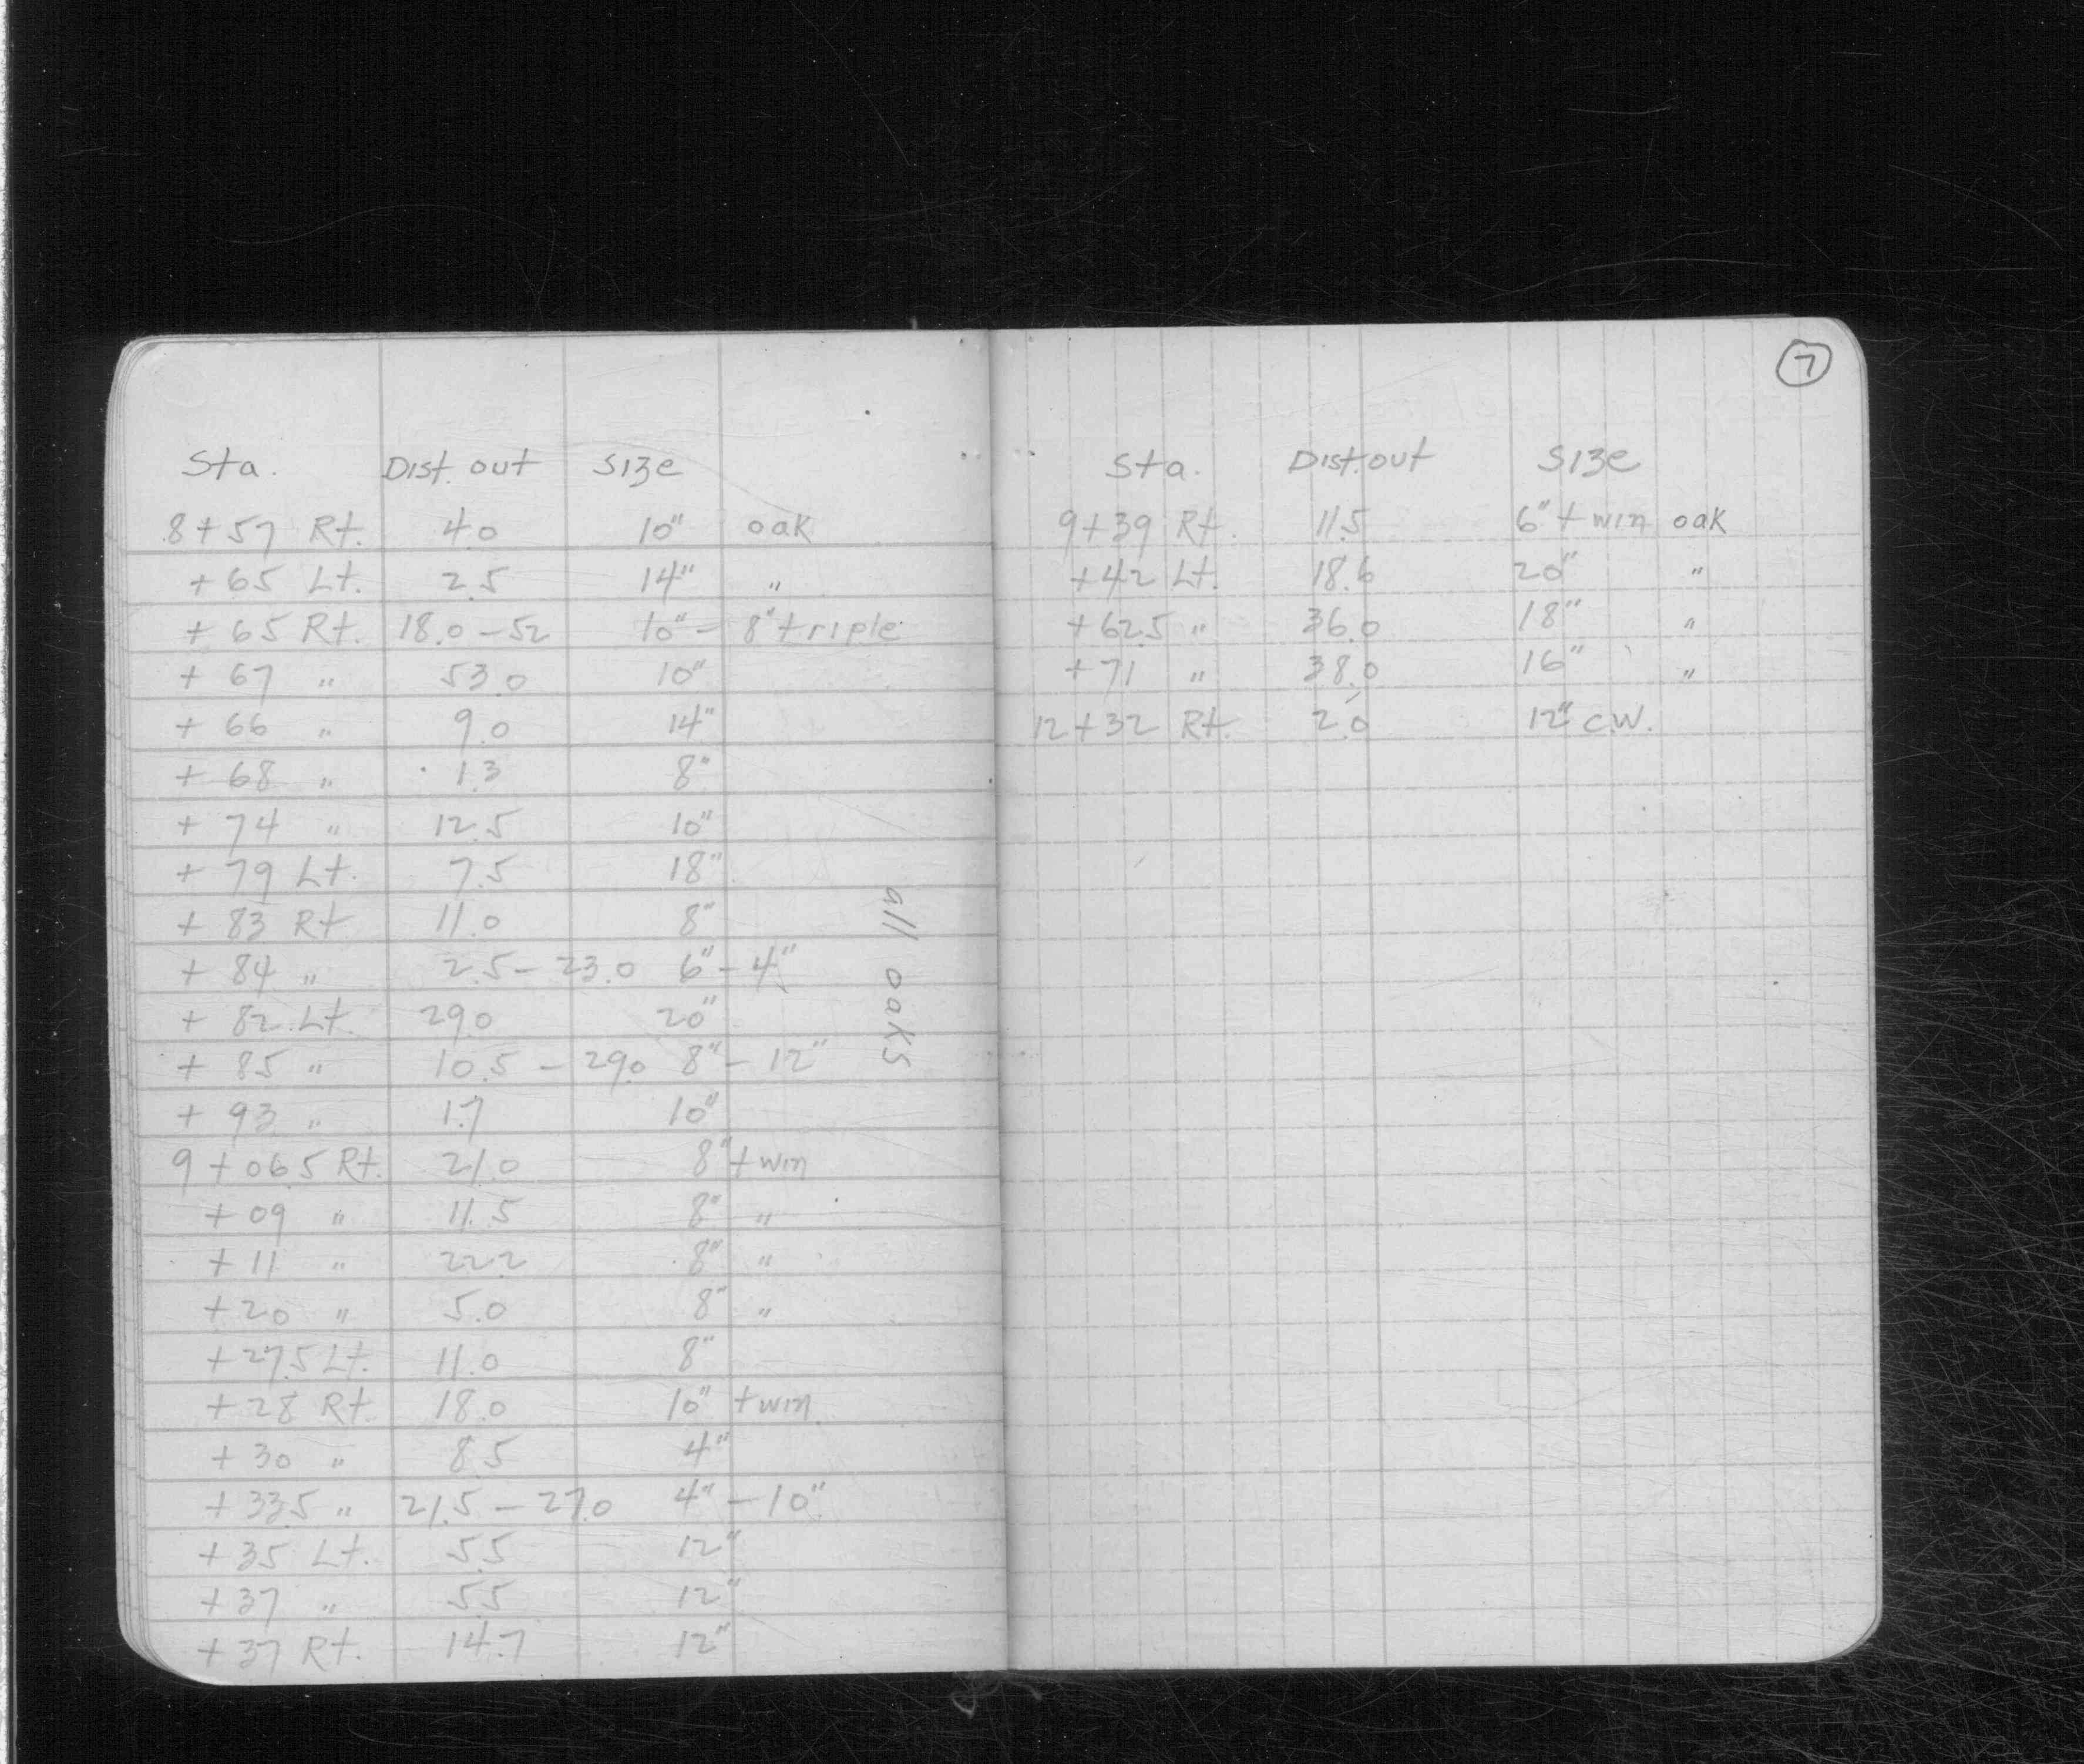 Sta. Dist. out Size
8+57 Rt. 4.0 10" oak
+65 Lt. 2.5 14" "
+65 Rt. 18.0-52 10"- 8" triple
+67 " 53.0 10"
+66 " 9.0 14"
+68 " 1.3 8"
+74 " 12.5 10"
+79 Lt. 7.5 18"
+83 Rt 11.0 8"
+84 " 2.5-23.0 6"-4"
+82 Lt. 29.0 20"
+85 " 10.5-29.0 8"-12"
+93 " 1.7 10"
9+06.5 Rt. 21.0 8" twin
+09 " 11.5 8" "
+11 " 22.2 8" "
+20 " 5.0 8" "
+27.5 Lt. 11.0 8"
+28 Rt. 18.0 10" twin
+30 " 8.5 4"
+33.5 " 21.5-27.0 4"-10"
+35 Lt. 5.5 12"
+37 " 5.5 12"
+37 Rt. 14.7 12"
all oaks
7
Sta. Dist. out Size
9+39 Rt. 11.5 6" twin oak
+42 Lt. 18.6 20" "
+62.5 " 36.0 18" "
+71 " 38.0 16" "
12+32 Rt. 2.0 12" C.W.